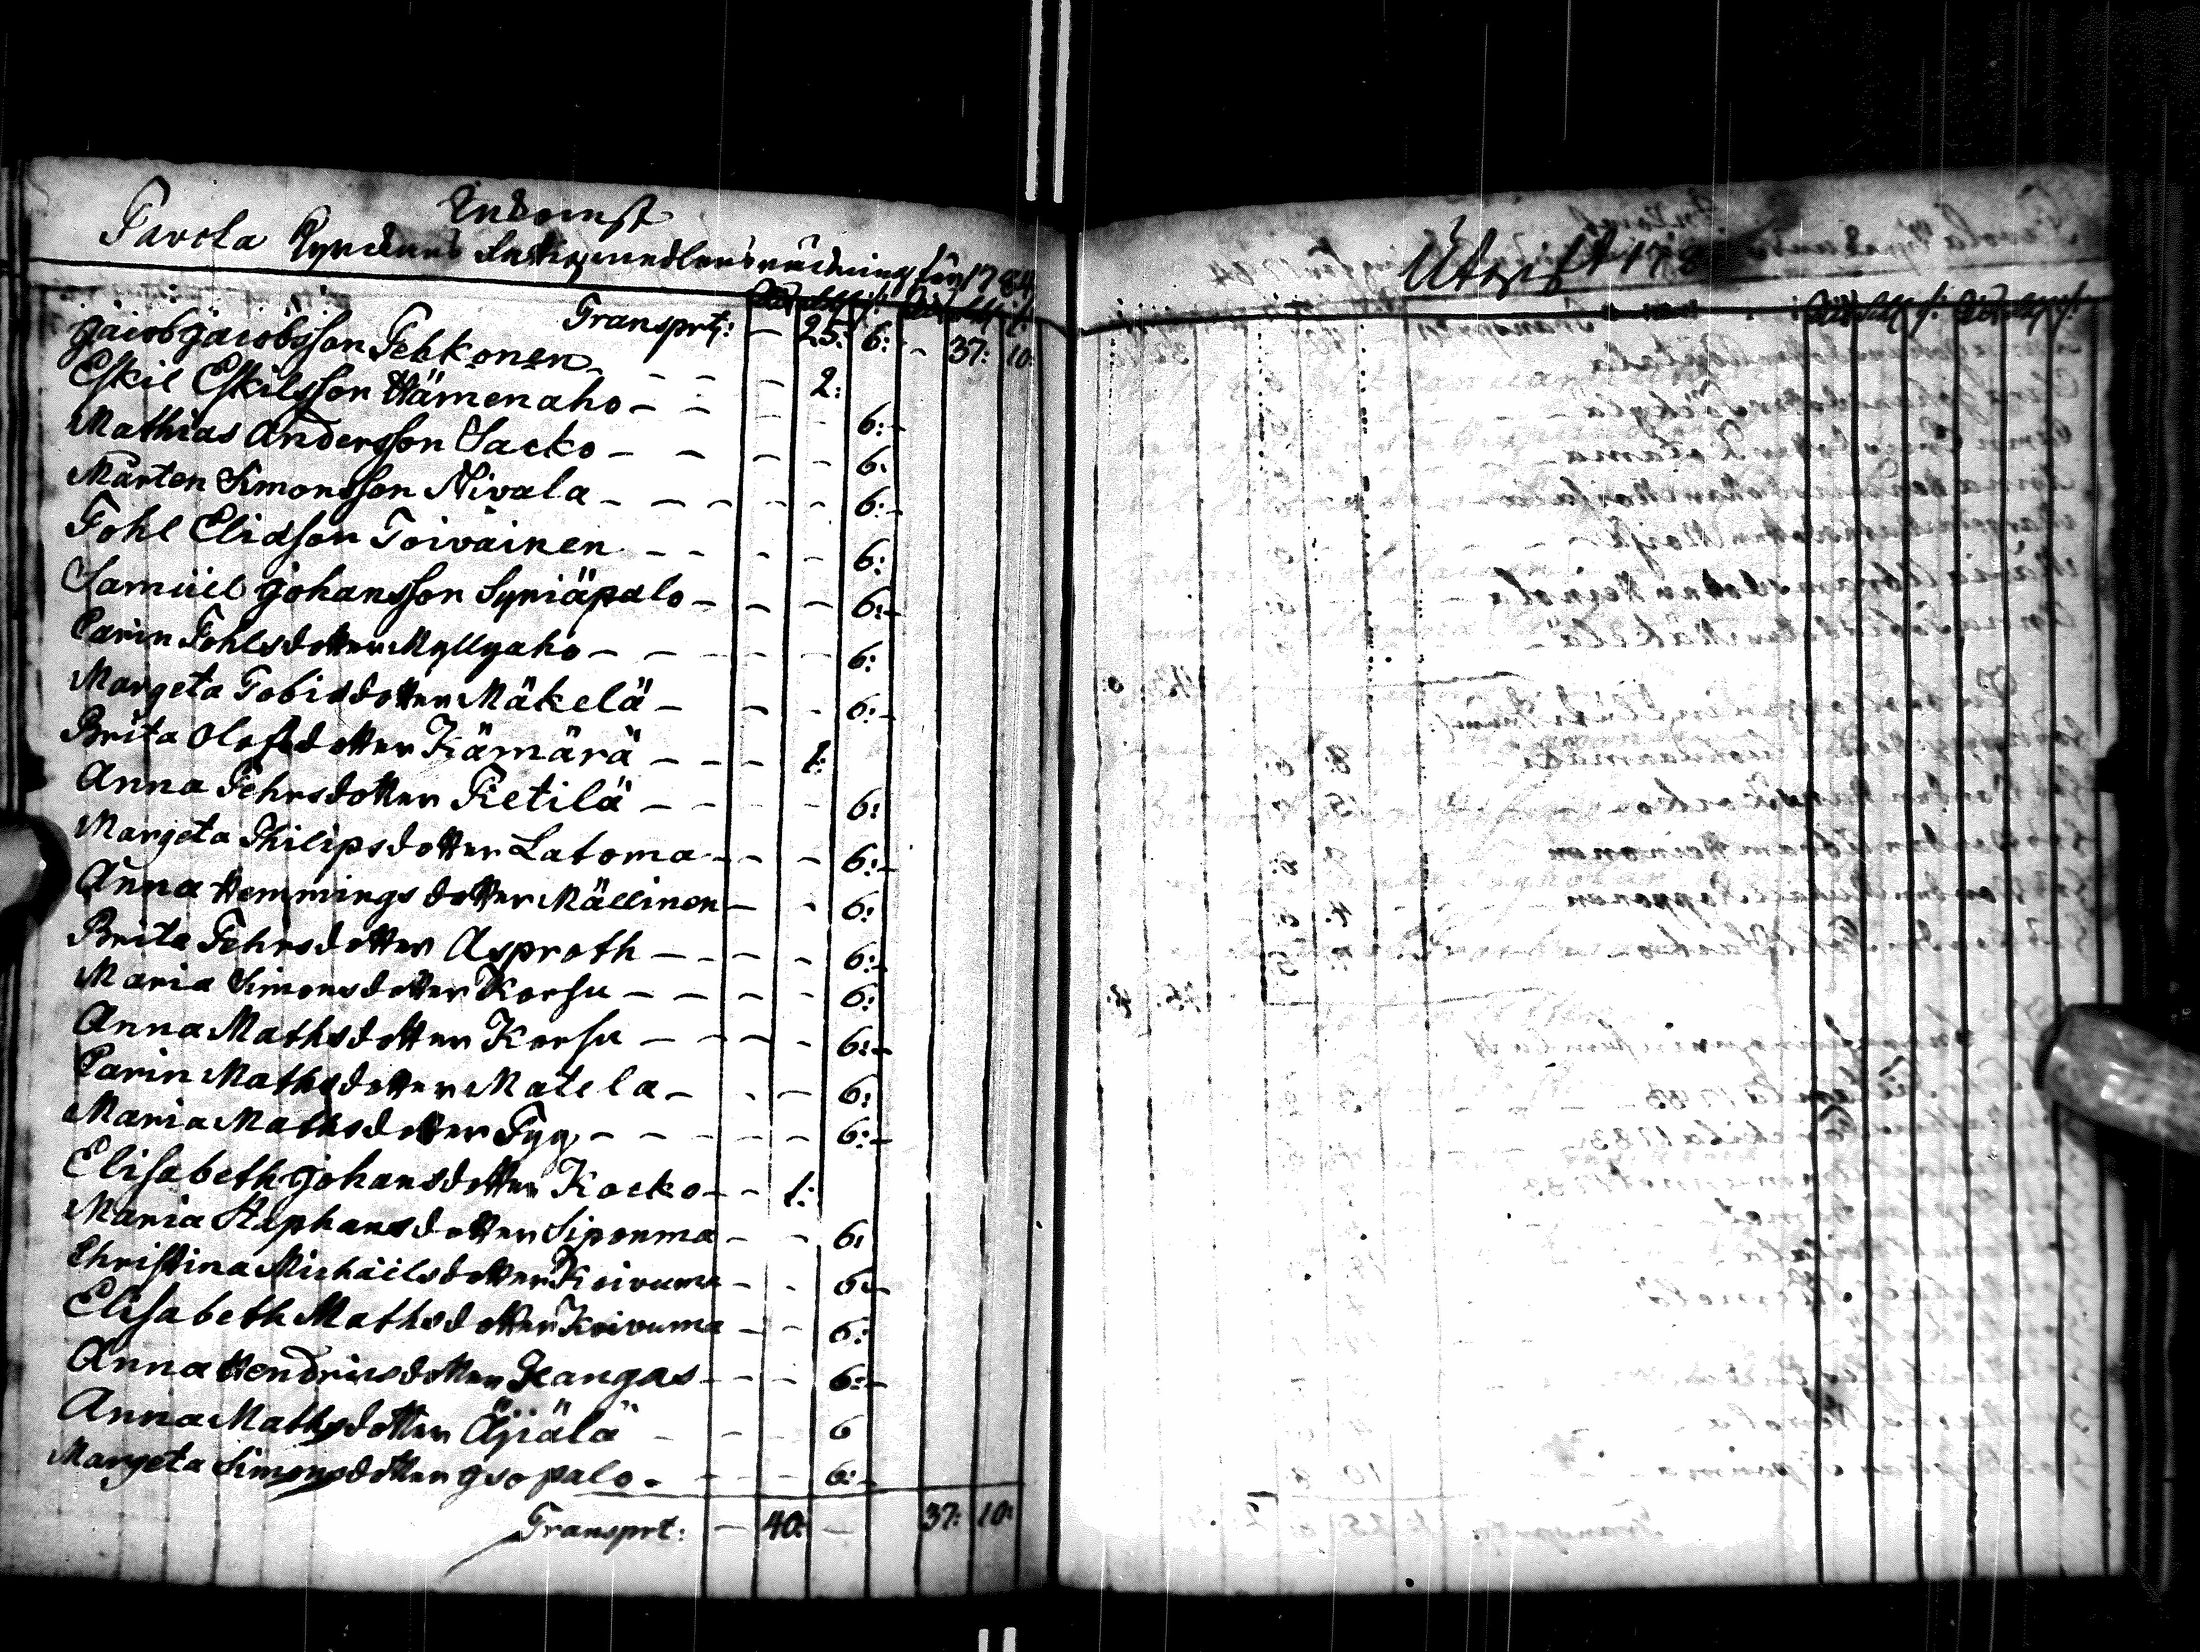 Inkomst
Pavola Kyrckans Fattigmedlens räckning för 1784
Rdr sk: f: Rdr sk: f:
Transprt: — 25: 6: — 37: 10:
Jacob Jacobsson Pehkonen — — — 2:
Eskil Eskilsson Hämenaho — — — 6:
Mathias Andersson Sacko — — — — 6:
Mårten Simonsson Nivala — — — — — 6:
Pohl Eliasson Toivainen — — — — 6:
Samuel Johansson Syriäpalo — — — 6:
Carin Pohlsdotter Myllyaho — — — — — 6:
Margeta Tobisdotter Mäkelä — — — 6:
Brita Olofsdotter Kämärä — — — — 1:
Anna Pehrsdotter Pietilä — — — — 6:
Margeta Philipsdotter Latoma — — — 6:
Anna Hemmingsdotter Mällinen — — 6:
Brita Pehrsdotter Asproth — — — — 6:
Maria Simonsdotter Korsu — — — — 6:
Anna Mathsdotter Korsu — — — — 6:
Carin Mathsdotter Matela — — — 6:
Maria Mathsdotter Pyy — — — — — 6:
Elisabeth Johansdotter Kocko — — 1:
Maria Stephansdotter Siponma — — 6:
Christina Michaëlsdotter Koivuma — — 6:
Elisabeth Mathsdotter Koivuma — — 6:
Anna Hendricsdotter Kangas — — — 6:
Anna Mathsdotter Äijälä — — — 6
Margeta Simonsdotter Isopalo — — — — 6:
Transprt: — 40: — 37: 10:
Utgift 178
Rdr sk: f: Rdr sk: f: